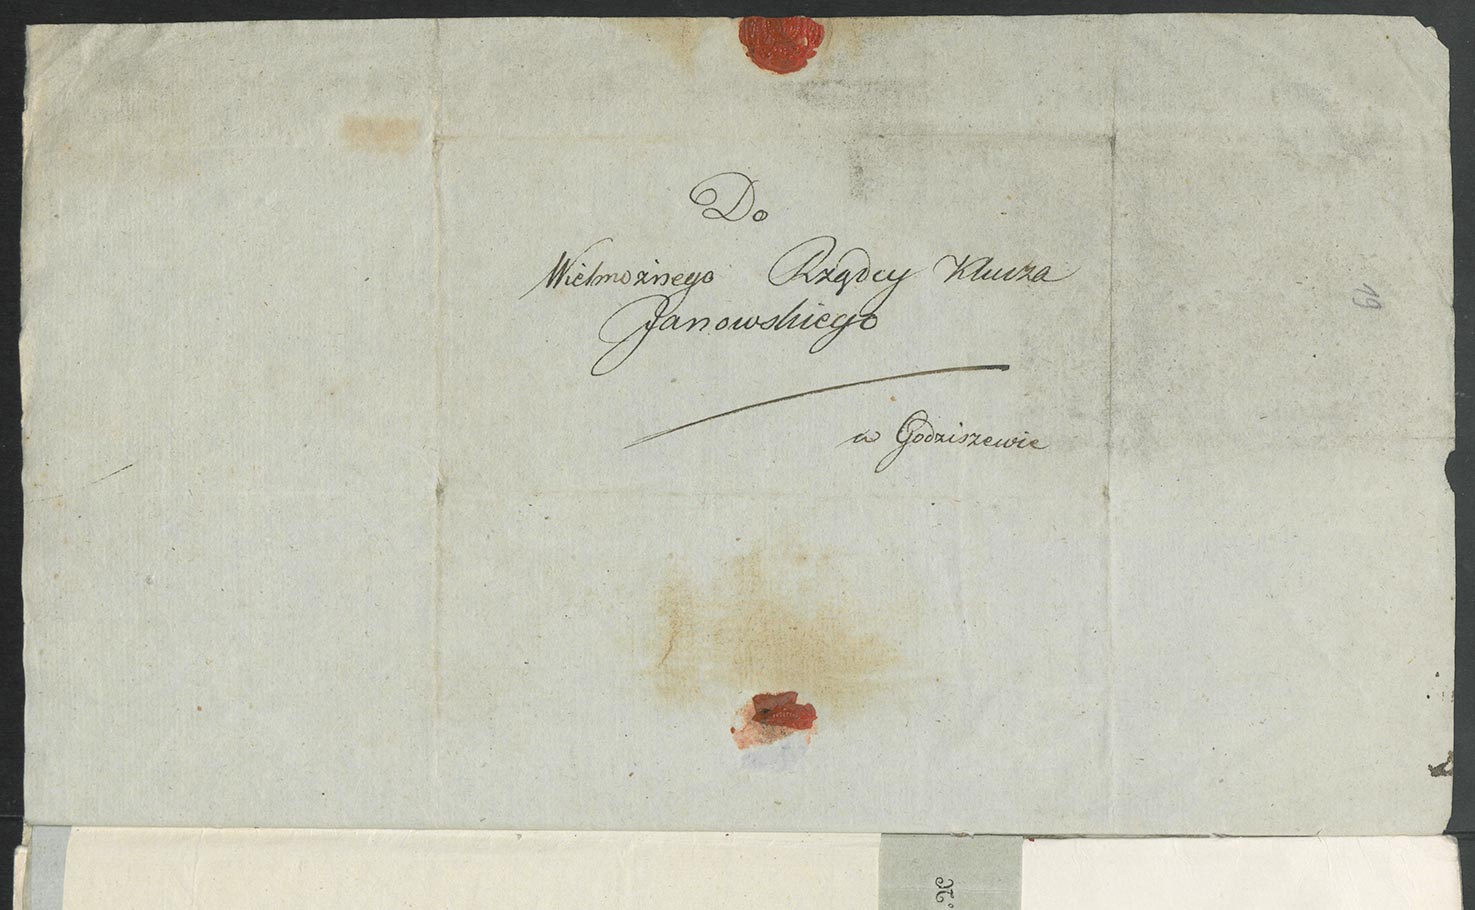 Do
Wielmożnego Rządcy Klucza
Janowskiego
w Godziszewie
19